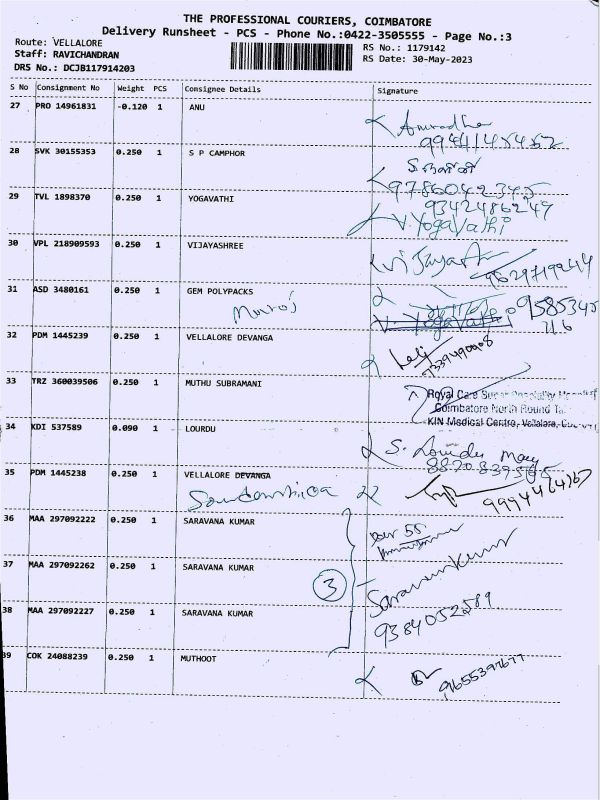 THE PROFESSIONAL COURIERS, COIMBATORE
Delivery Runsheet - PCS - Phone No.:0422-3505555 - Page No.:3
Route: VELLALORE
RS No.: 1179142
Staff: RAVICHANDRAN
RS Date: 30-May-2023
DRS No.: DCJB117914203
S No Consignment No Weight PCS Consignee Details Signature
27 PRO 14961831 -0.120 1 ANU
Anuradha
9944145452
28 SVK 30155353 0.250 1 S P CAMPHOR
9786042345
29 TVL 1898370 0.250 1 YOGAVATHI
9342486249
V. Yogavathi
30 VPL 218909593 0.250 1 VIJAYASHREE
31 ASD 3480161 0.250 1 GEM POLYPACKS
9585345
716
V. Yogavathi
32 PDM 1445239 0.250 1 VELLALORE DEVANGA
33 TRZ 360039506 0.250 1 MUTHU SUBRAMANI
Royal Care Super Speciality Hospital
Coimbatore North Round Ta
KIN Medical Centre, Vellalore,
34 KDI 537589 0.090 1 LOURDU
S. Lourdu Mary
35 PDM 1445238 0.250 1 VELLALORE DEVANGA
36 MAA 297092222 0.250 1 SARAVANA KUMAR
55
37 MAA 297092262 0.250 1 SARAVANA KUMAR
3
Saravankumar
38 MAA 297092227 0.250 1 SARAVANA KUMAR
9384052589
39 COK 24088239 0.250 1 MUTHOOT
9655397677